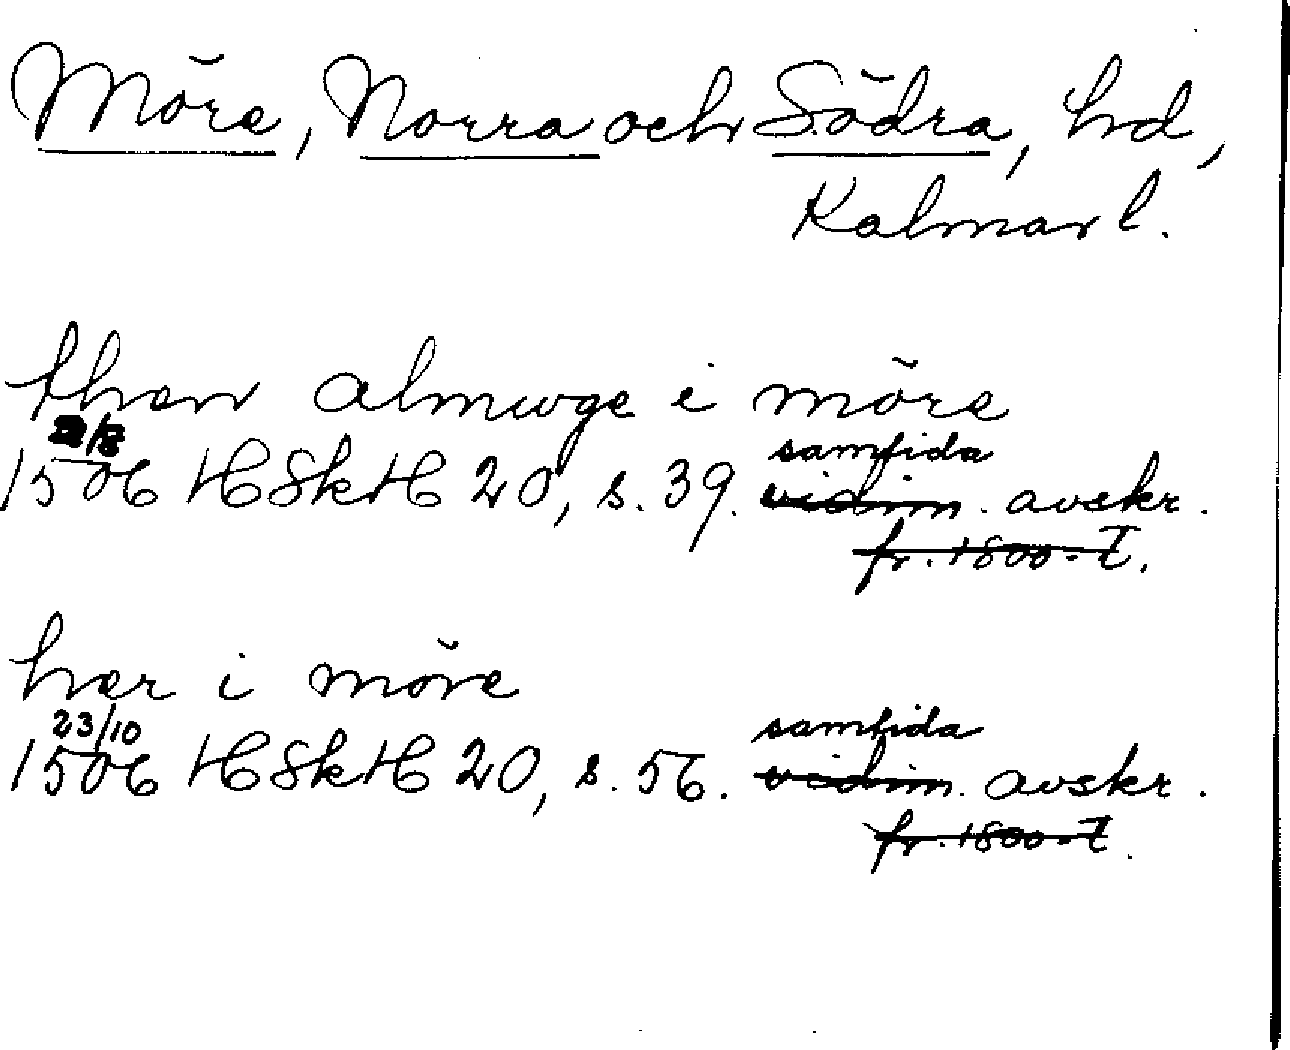 Möre, Norra och Södra, hd,
Kalmar l.
then almwge i möre
1506 HSkH 20, s. 39. samtida
vidim. avskr.
fr. 1800-t.
hær i möre
23/10
1506 HSkH 20, s. 56. samtida
vidim. avskr.
fr. 1800-t.